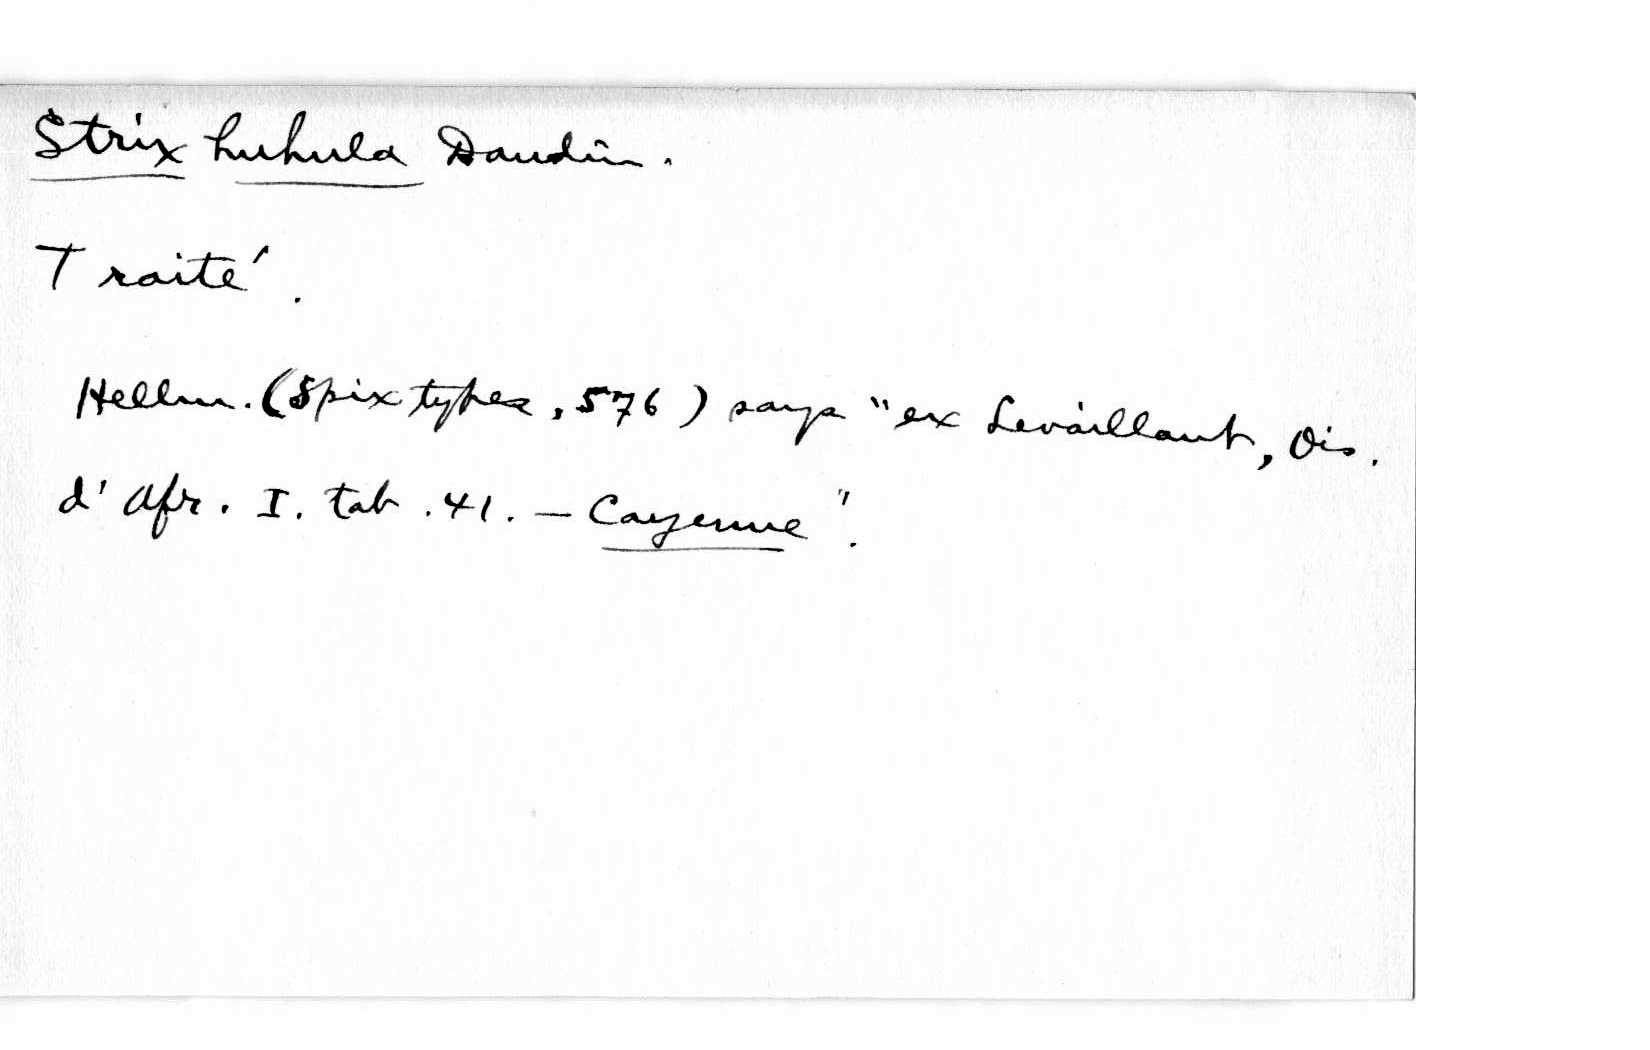 Strix huhula Daudin.
Traité.
Hellm. (Spix types, 576) says "ex Levaillant, Ois.
d'Afr. I. tab. 41. — Cayenne".